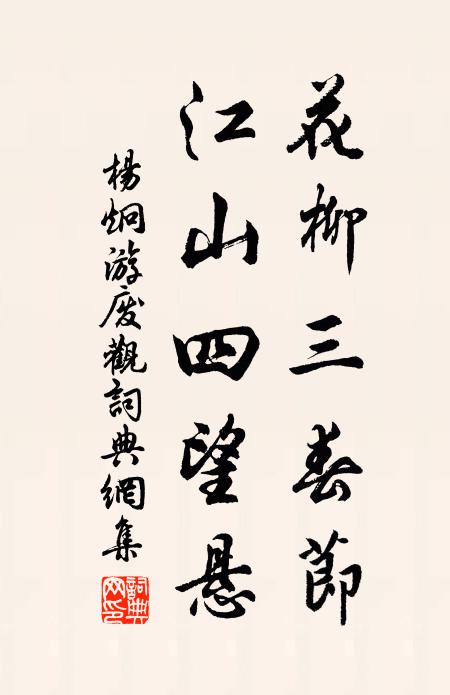 花柳三春節
江山四望悬
楊炯游废觀詞典網集
詞典網印